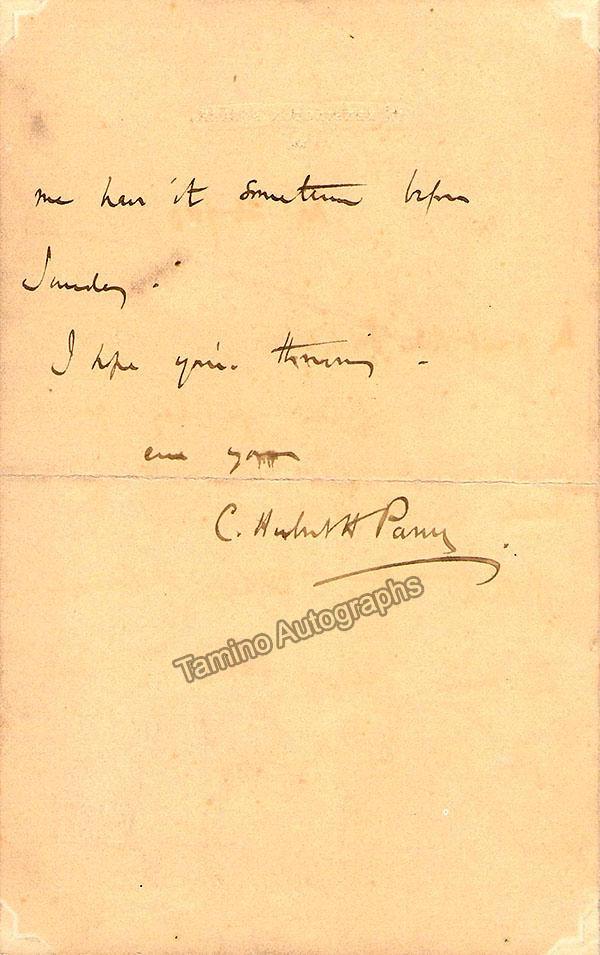 me have it sometime before
Sunday.
I hope you're thriving -
ever yours
C. Hubert H Parry.
Tamino Autographs